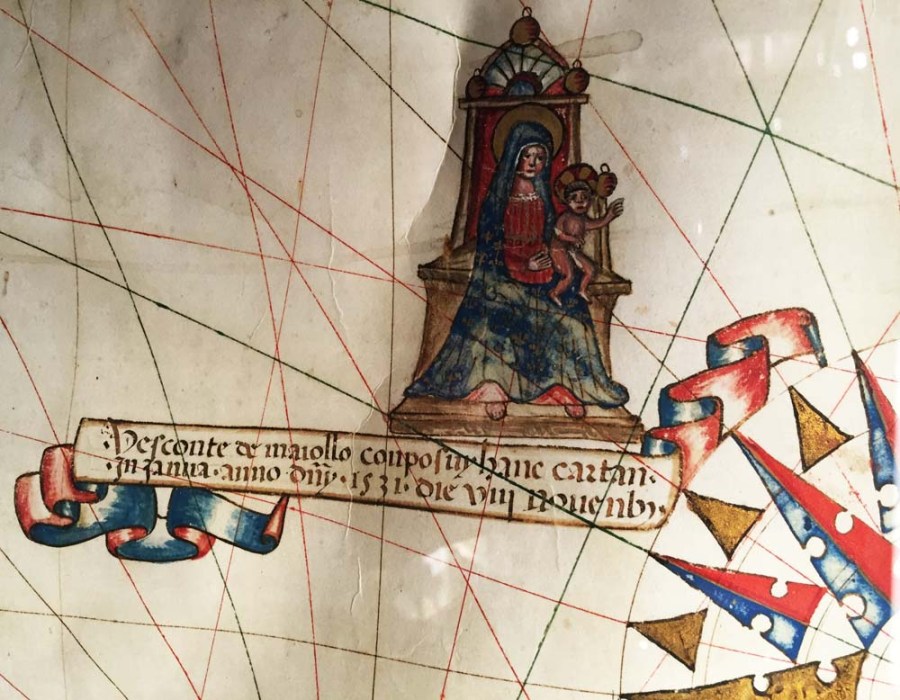 Vesconte de maiollo conposuy hanc cartan.
·In Janua· anno dny· 1531· die viii novenby·